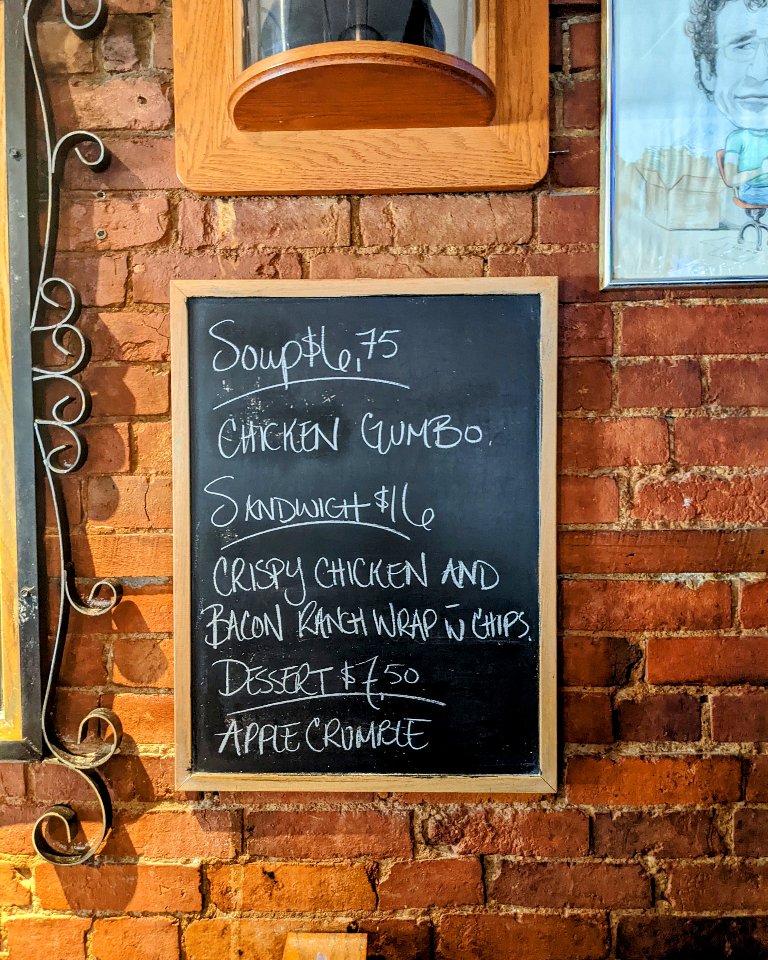 Soup $6,75
CHICKEN GUMBO.
SANDWICH $16
CRISPY CHICKEN AND
BACON RANCH WRAP w̄ CHIPS.
DESSERT $7,50
APPLE CRUMBLE